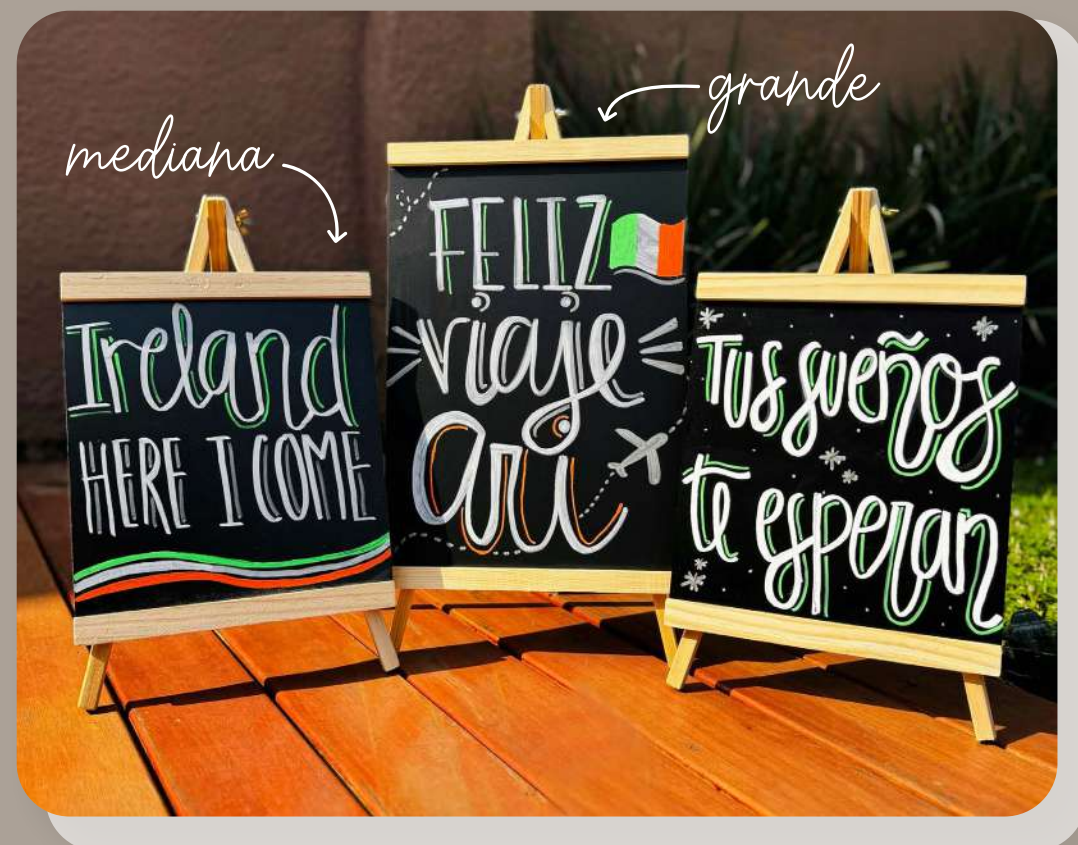 mediana
grande
Ireland
HERE I COME
FELIZ
viaje
Ari
Tus sueños
te esperan